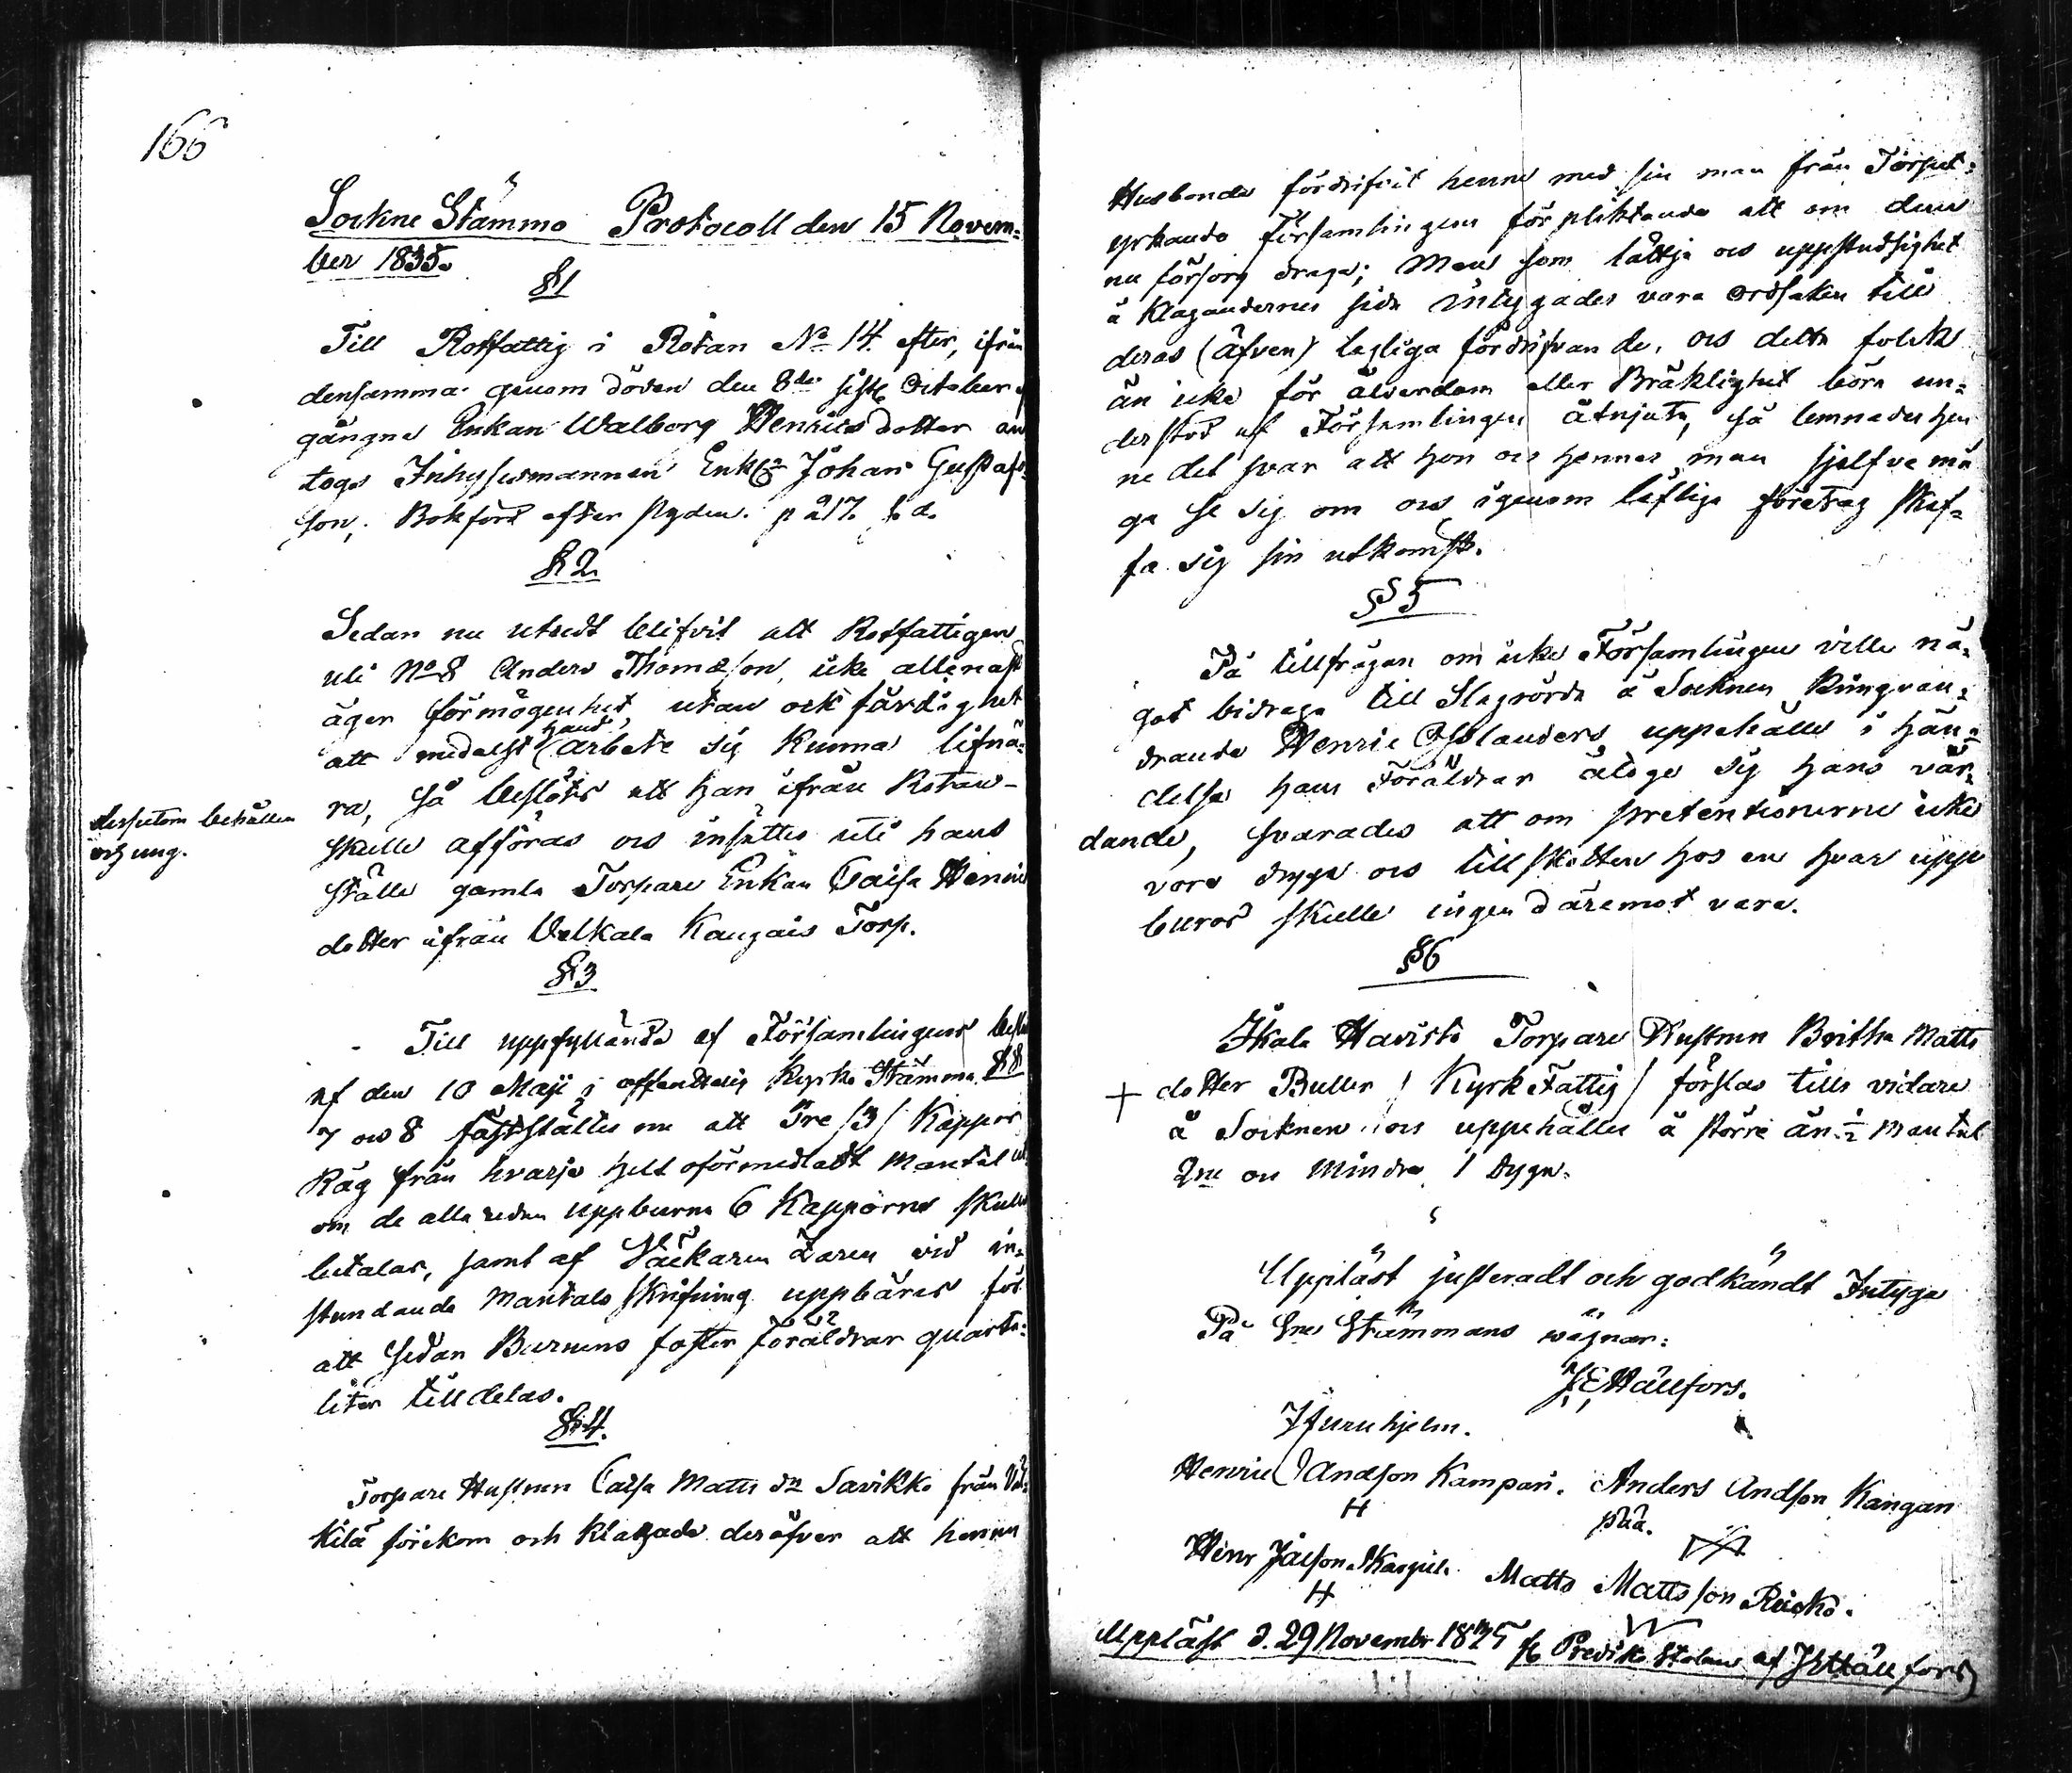 166
Sockne Stämmo Protocoll den 15 Novem-
ber 1835.
§1
Till Rotfattig i Rotan No 14. efter, ifrån
densamma genom döden den 8de sistl October
gångne Enkan Walborg Henricsdotter an
togs Inhysesmannen Enkl Johan Gustafs-
son; Bokförd efter
§2.
Sedan nu utredt blifvit att Rotfattigen
uti No 8 Anders Thomasson, icke allenast
äger förmögenhet, utan ock färdighet
att medelst hand arbete sig kunna lifnä-
ra, så beslöts att han ifrån Rotan
skulle afföras och insättas uti hans
ställe gamla Torpare Enkan Caisa Henrics
dotter ifrån Valkala Kangais Torp.
dessutom behåller
§3
Till uppfyllande af Församlingens beslut
af den 10 Maji i offentelig Kyrko Stämma §§
7 och 8 fastställtes nu att Tre /3/ Kappor
Råg från hvarje helt oförmedladt Mantal
om de alla redan uppburna 6 Kapporne skulle
betalas, samt af Väckaren Zaren vid in-
stundande Mantals Skrifning uppbäras för
att sedan Barnens foster Föräldrar quarta-
liter tilldelas.
§4.
Torpare Hustrun Caisa Matts dr Savikko från
kilä förekom och klagade deröfver att hennes
Husbonde fördrifvit henne med sin man från Torpet:
yrkande Församlingens förpliktande att om dem
nu försorg draga; Men som lättja och uppstudsighet
å klagandernes sida intygades vara Orsaken till
deras (äfven) lagliga fördrifvande, och detta folk
än icke för ålderdom eller Bräklighet böra un-
derstöd af Församlingen åtnjuta, så lemnades hen
ne det svar att hon och hennes man sjelfve må
ga se sig om och igenom löflige företag skaf-
fa sig sin utkomst.
§5
På tillfrågan om icke Församlingen ville nå-
got bidraga till Slagrörde å Socknen Kringvan-
drande Henric Osolanders uppehälle i hän-
delse hans Föräldrar åtoge sig hans vår-
dande, svarades att om pretentionerne icke
vore dryga och tillskotten hos en hvar upp
buros skulle ingen däremot vara.
§6
Ikala Havisto Torpare Hustrun Britha Matts
+ dotter Buller / Kyrk Fattig / förslas tills vidare
å Socknen och uppehålles å större än ½ Mantal
2ne och Mindre 1 Dygn.
Uppläst justeradt och godkändt Intyga
På Sne Stämmans wägnar:
J.E. Hällfors.
J Furuhjelm.
Henric Andson Kampari. Anders Andson Kangan
H pää.
Henr Jacson Matts Mattsson Reiko.
H
Uppläst d. 29 Novembr 1835 fr Prediko Stolen af J E Hällfors